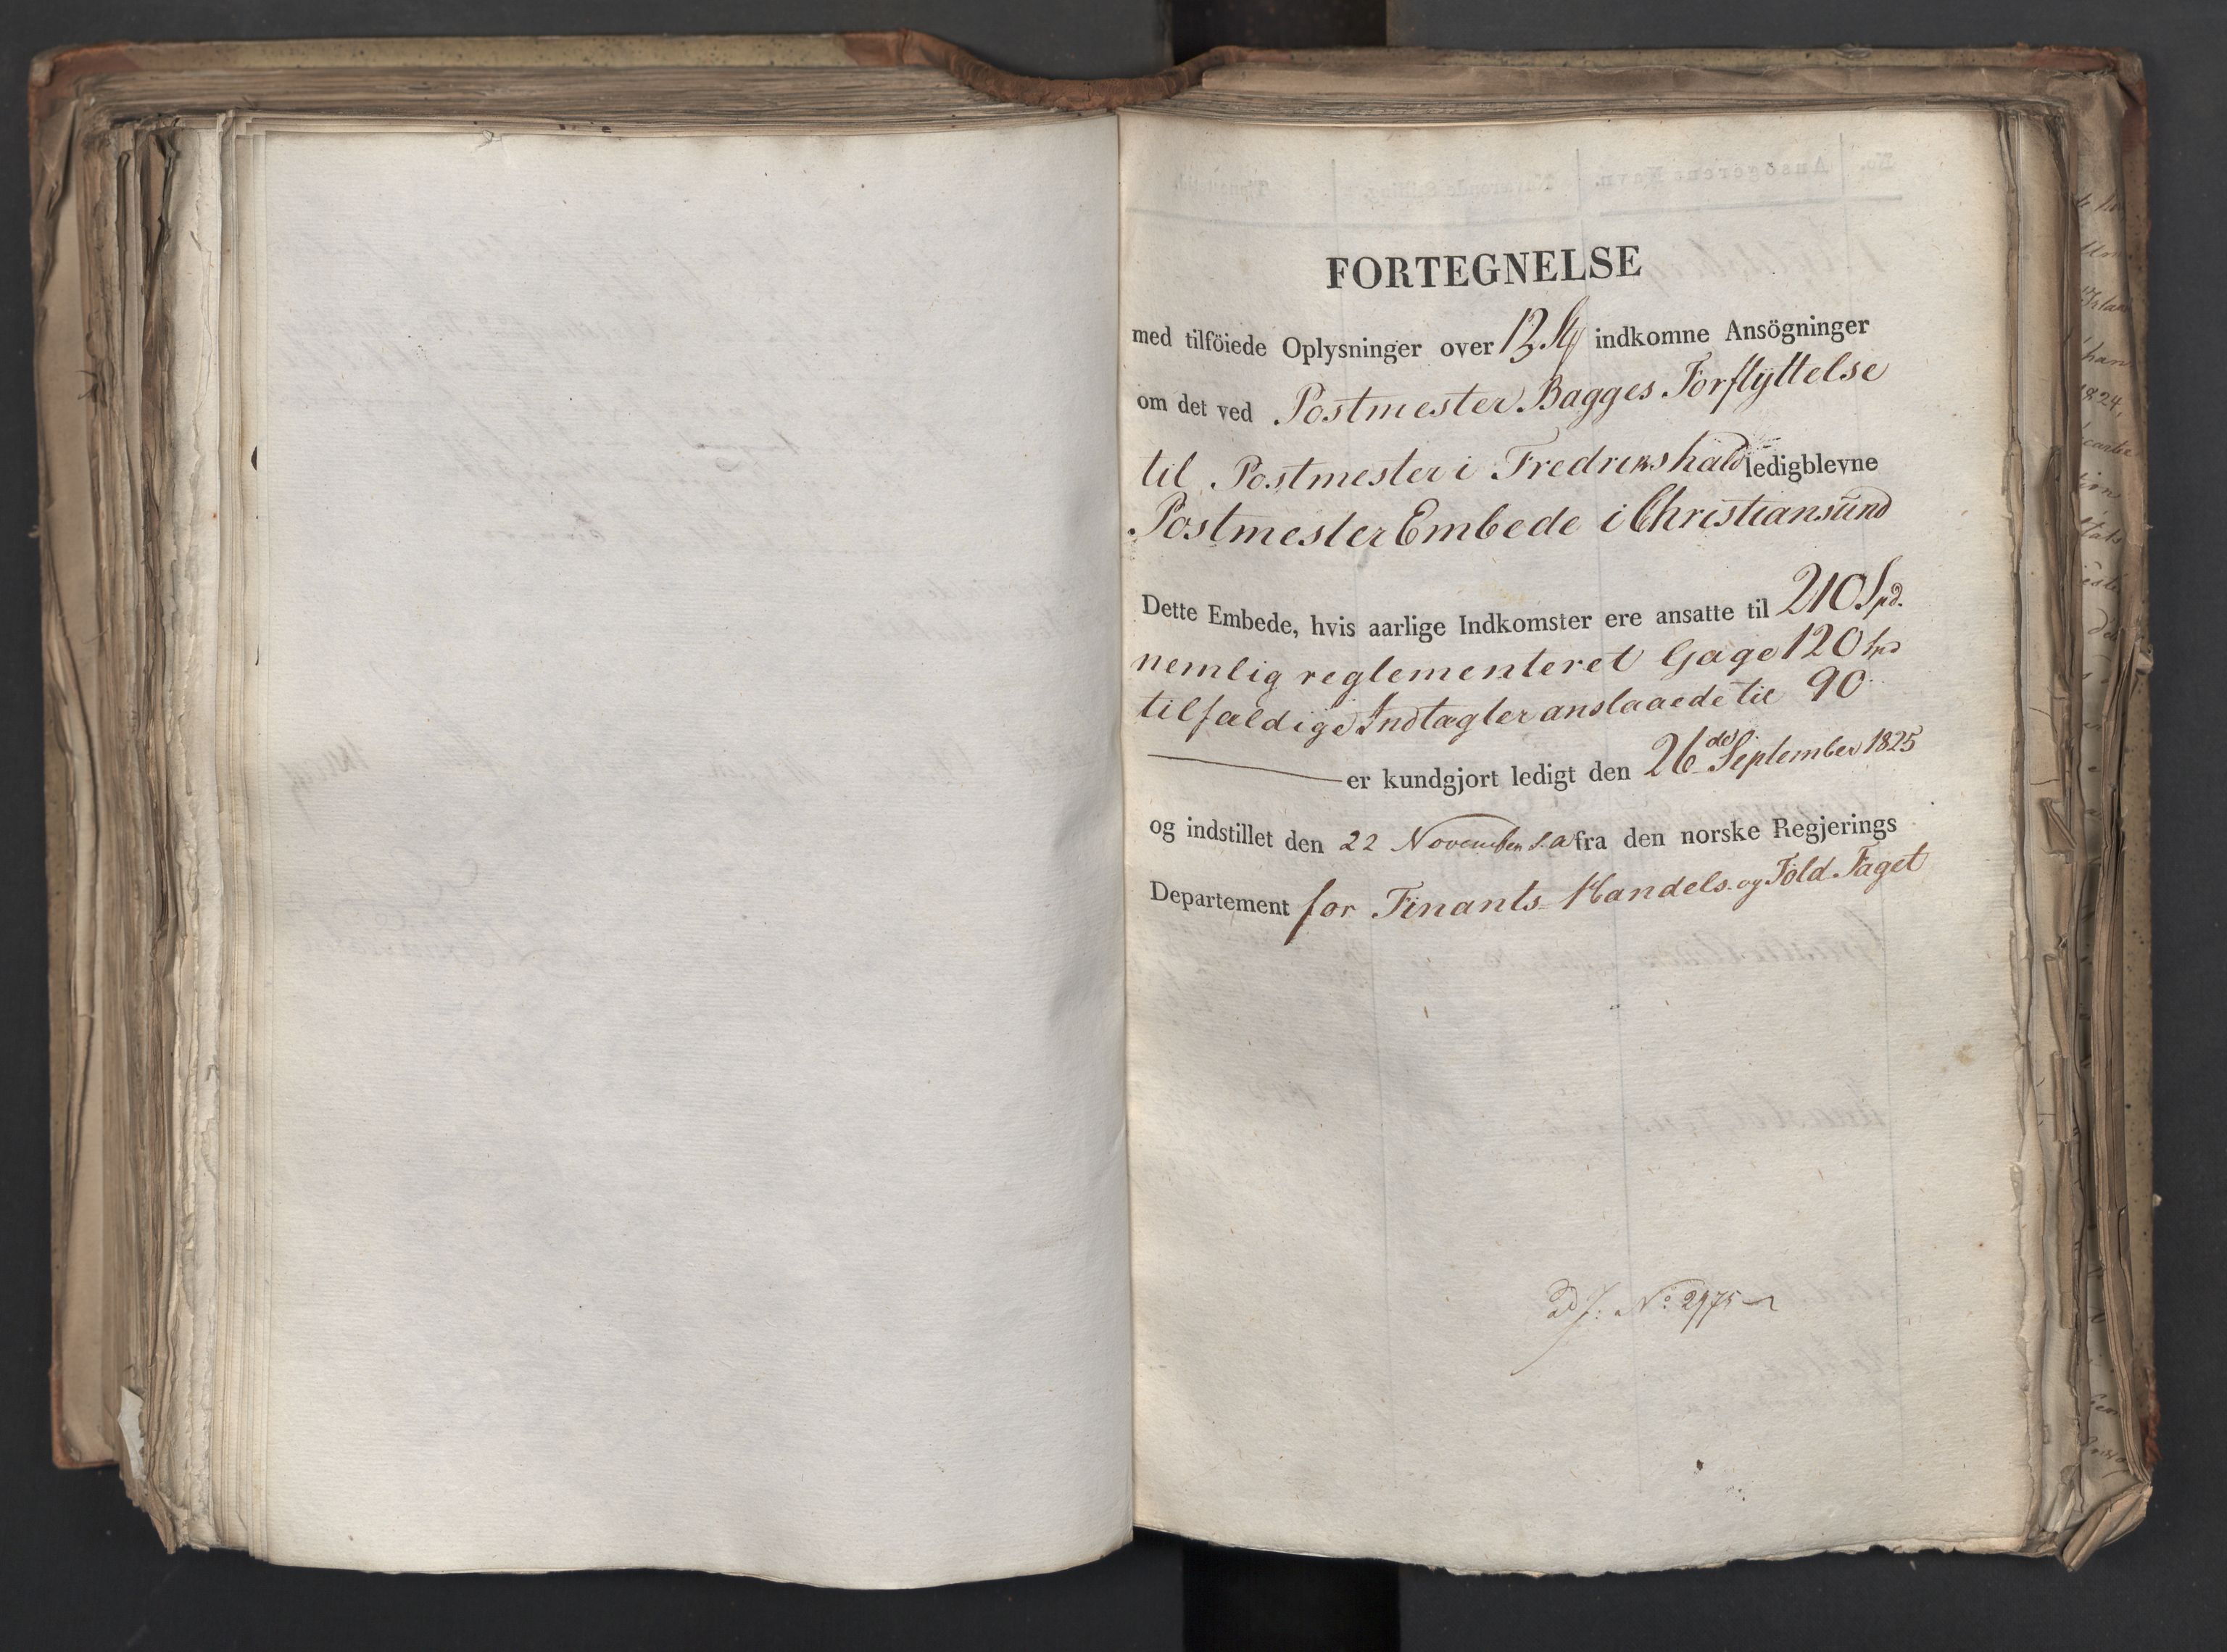 FORTEGNELSE
med tilföiede Oplysninger over 12 St indkomne Ansögninger
om det ved Postmester Bagges Forflyttelse
til Postmester i Fredrikshald ledigblevne
Postmester Embede i Christiansund
Dette Embede, hvis aarlige Indkomster ere ansatte til 210 Spd.
nemlig reglementeret Gage 120 Spd
tilfældige Indtægter anslaaede til 90
er kundgjort ledigt den 26de September 1825
og indstillet den 22 November s.a. fra den norske Regjerings
Departement for Finants- Handels- og Told-Faget
No 2975